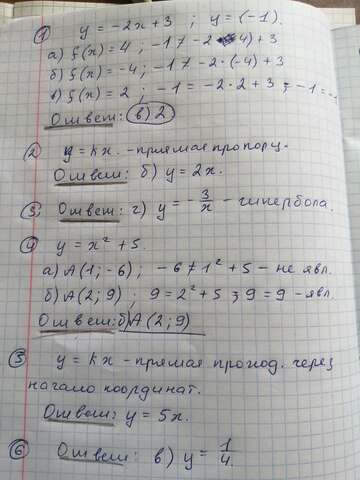 ① y = -2x + 3 ; y = (-1).
а) f(x) = 4 ; -1 ≠ -2 · 4) + 3
б) f(x) = -4 ; -1 ≠ -2 · (-4) + 3
в) f(x) = 2 ; -1 = -2 · 2 + 3 ; -1 = -1
Ответ: в) 2
② y = kx. - прямая пропорц.
Ответ: б) y = 2x.
③ Ответ: г) y = -3/x - гипербола.
④ y = x² + 5.
а) A (1; -6) ; -6 ≠ 1² + 5 - не явл.
б) A (2; 9) ; 9 = 2² + 5 ; 9 = 9 - явл.
Ответ: б) A (2; 9)
⑤ y = kx - прямая проход. через
начало координат.
Ответ: y = 5x.
⑥ Ответ: в) y = 1/4.